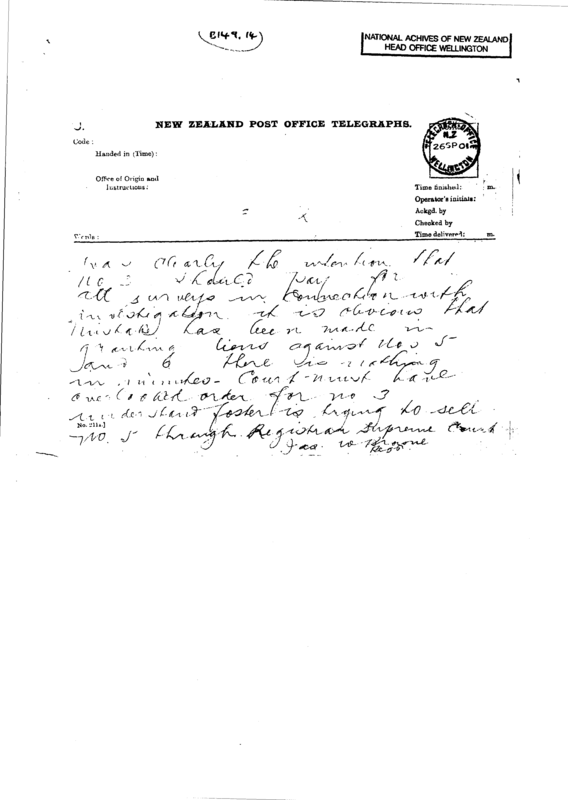 (B149, 14)
NATIONAL ACHIVES OF NEW ZEALAND
HEAD OFFICE WELLINGTON
J.
NEW ZEALAND POST OFFICE TELEGRAPHS.
Code :
Handed in (Time) :
Office of Origin and
Instructions :
TELEGRAPH OFFICE
N.Z
26 SP 01
WELLINGTON
Time finished: m.
Operator's initials:
Ackgd. by
Checked by
Time delivered: m.
Words :
was clearly the intention that
No 3 should pay for
all surveys in connection with
investigation it is obvious that
mistake has been made in
granting liens against Nos 5
and 6 there is nothing
in minutes - Court must have
overlooked order for no 3
understand foster is trying to sell
No. 211a.]
no. 5 through Registrar Supreme Court
Jas W Browne